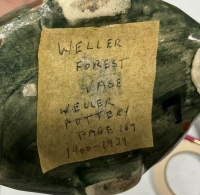 WELLER
FOREST
VASE
WELLER
POTTERY
PAGE 169
1900-1929